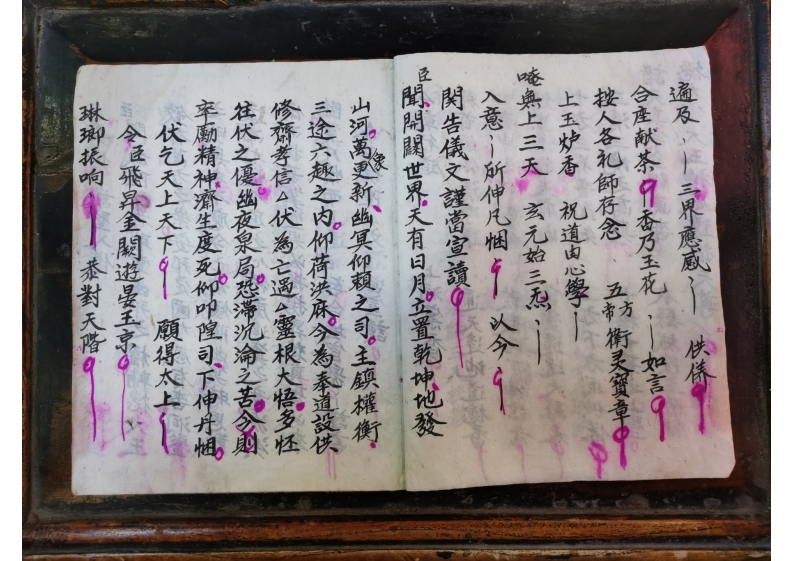 遍及〡三界應感〡　供俻
合座献茶　香乃玉花〡如言
按人各礼師存念　五方五帝衛灵寶章
上玉炉香　祝道由心學〡
唵無上三天　玄元始三炁〡
入意〡所伸凡悃　以今
関告儀文謹當宣讀
臣聞開闢世界天有日月立置乾坤地發
山河萬象更新幽冥仰賴之司主鎮權衡
三途六趣之内仰荷洪庥今為奉道設供
修齋孝信△伏為亡過△靈根大悟多怌
往伏之優幽夜泉局恐滯沉淪之苦今則
卒勵精神濟生度死仰叩隍司下伸丹悃
伏乞天上天下　願得太上〡
令臣飛昇金闕遊晏玉京
琳瑯振响　恭對天階